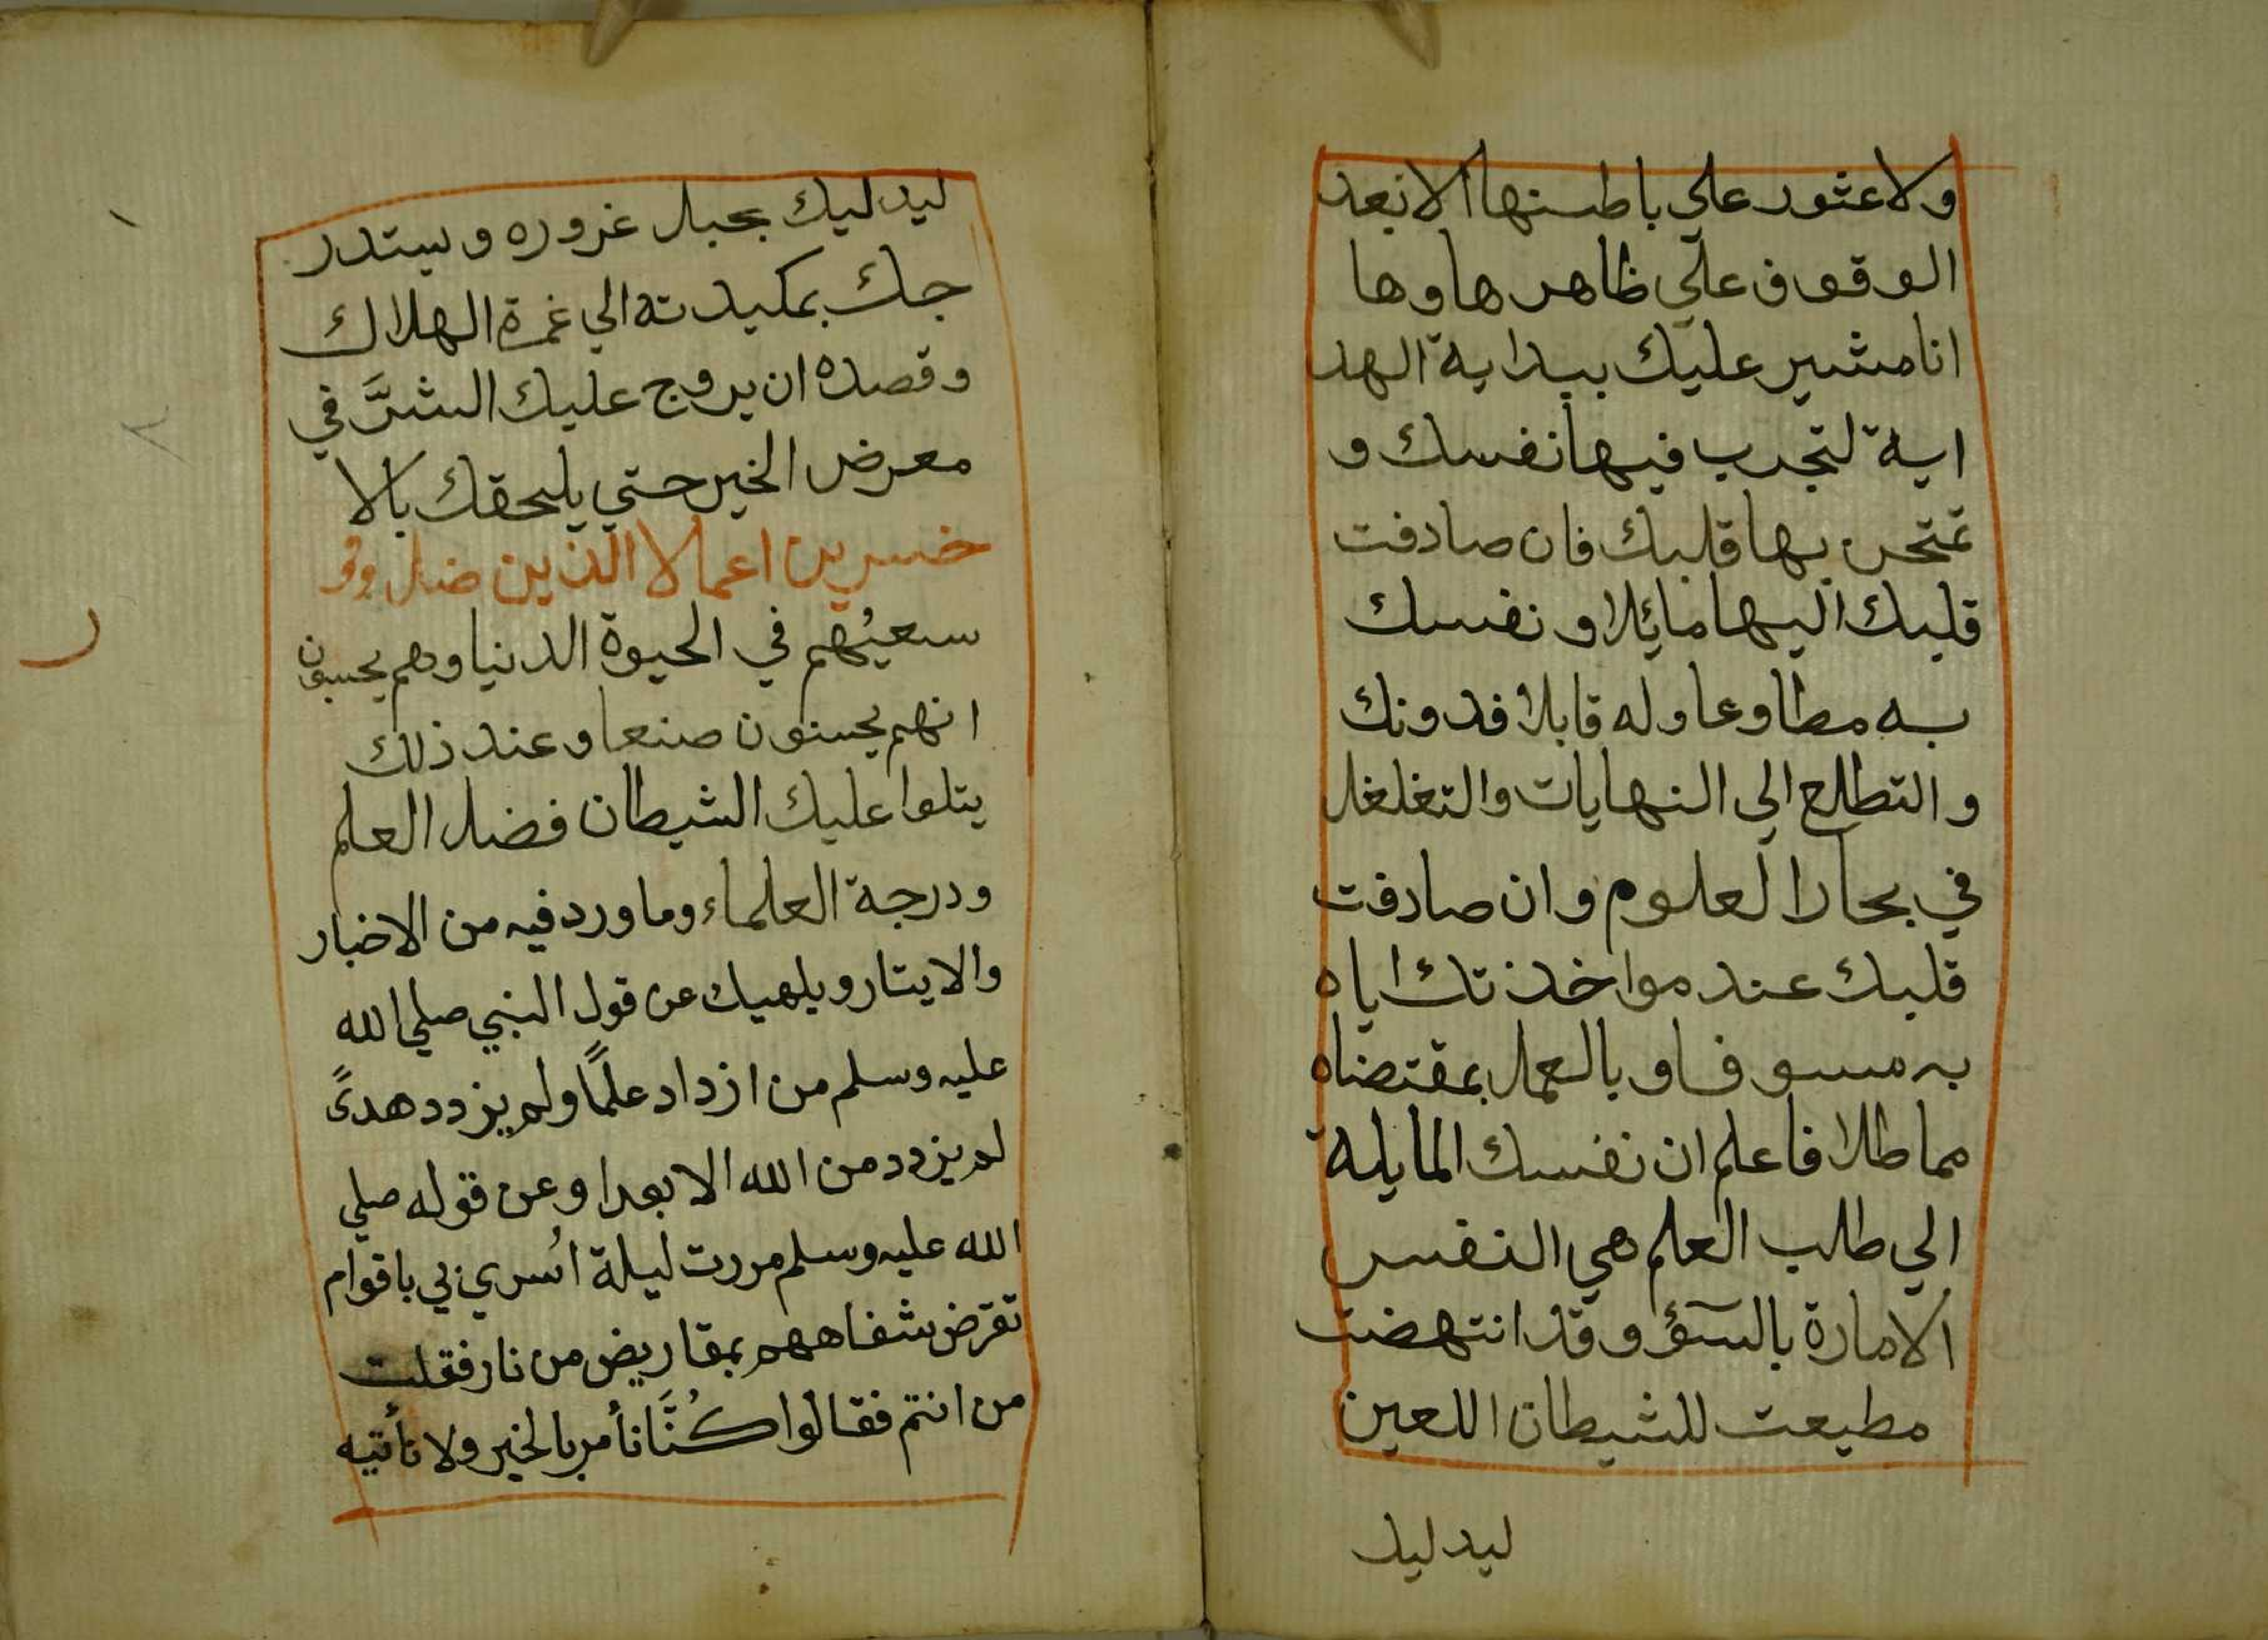 ولا عثور علي باطنها الا بعد
الوقوف علي ظاهرها وها
انا مشير عليك ببداية الهد
اية لتجرب فيها نفسك و
تمتحن بها قلبك فان صادفت
قلبك اليها مائلا و نفسك
به مطاوعا وله قابلا فدونك
والتطلع الي النهايات والتغلغل
في بحار العلوم وان صادفت
قلبك عند مواخذتك اياه
به مسوفا و بالعمل بمقتضاه
مماطلا فاعلم ان نفسك المايلة
الي طلب العلم هي النفس
الامارة بالسوٓء وقد انتهضت
مطيعت للشيطان اللعين
ليدليك
ليدليك بحبل غروره ويستدر
جك بمكيدته الي غمرة الهلاك
وقصده ان يروج عليك الشرَّ في
معرض الخير حتي يلحقك بالا
خسرين اعمالا الذين ضل
سعيُهم في الحيوة الدنيا وهم يحسبون
انهم يحسنون صنعا وعند ذلك
يتلوا عليك الشيطان فضل العلم
ودرجة العلماء وما ورد فيه من الاخبار
والايتار ويلهيك عن قول النبي صلي الله
عليه وسلم من ازداد علمًا ولم يزدد هدىً
لم يزدد من الله الا بعدا وعن قوله صلي
الله عليه وسلم مررت ليلة اُسري بي باقوام
تقرض شفاههم بمقاريض من نار فقلت
من انتم فقالوا كُنَّا نأمر بالخير ولا نأتيه
ر